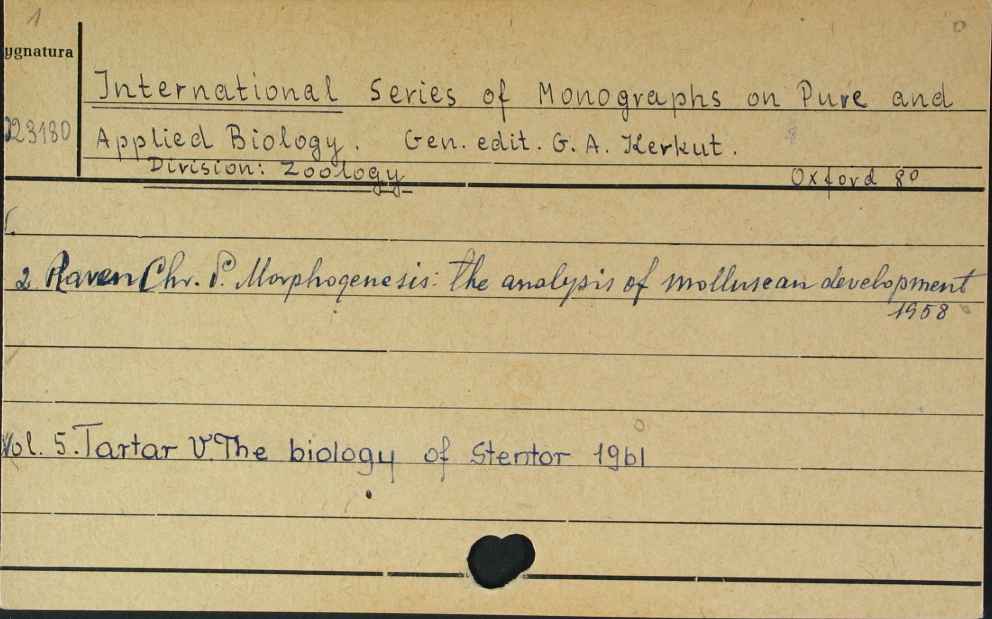 1
ygnatura
International Series of Monographs on Pure and
223180
Applied Biology. Gen. edit. G. A. Kerkut.
Division: Zoology
Oxford 8º
1.
2 Raven Chr. P. Morphogenesis: The analysis of molluscan development
1958
Vol. 5. Tartar V. The biology of Stentor 1961